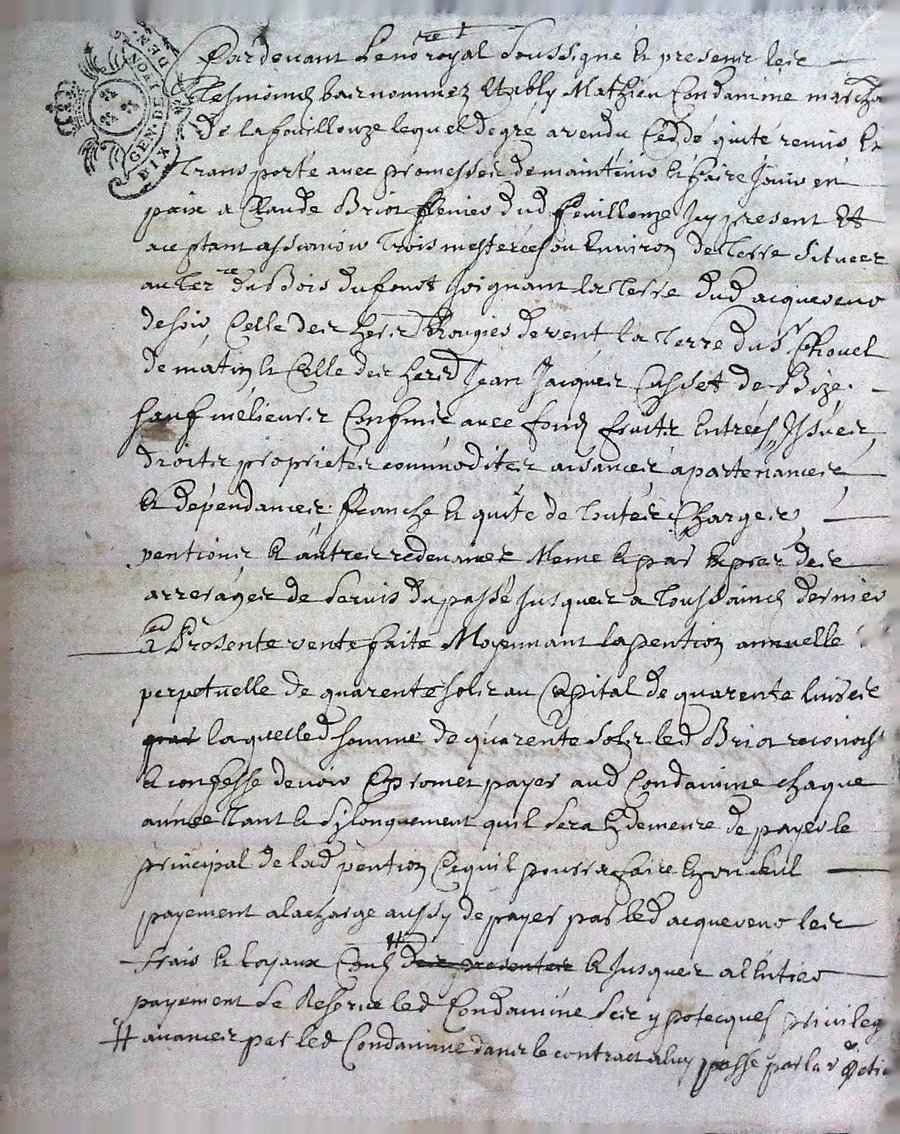 GEN. DE LYON
DEN.
DIX
Pardevant Le no.re royal soussigné et presents les
Tesmoins bas nommez Etably Mathieu Condamine marcha
De la fouillouze lequel de gré a vendu Ceddé quité remis et
Transporté avec promesses de maintenir et faire Jouir en
paix a Claude Briot dud fouillouze Icy present Et
aceptant assavoir Trois mesterées ou Environ de Terre Situées
au Ter.re du Bois du Joignant la Terre dud acquereur
de soir Celle des hers de vent la Terre du Sr Chovel
de matin et Celle des hers Jean Jacques de Bize
sauf meilleurs Confins avec fond fruits Entrées Issües
droits proprietés commoditez aisances apartenances
et dépendances franche et quite de toutes Charges
pentions et autres redevances Meme et par Exprez des
arrerages de servis du passé Jusques a Toussaincts dernier
La Présente vente faite Moyennant la pention annuelle
perpetuelle de quarente sols au Capital de quarente livres
par laquelled somme de quarente sols led Briot reconoit
et confesse devoir Et promet payer aud Condamine chaque
année Tant et sy longuement quil sera En demeure de payer le
principal de lad pention Ce quil pourra faire En un seul
payement a la charge aussy de payer par led acquereur les
frais et loyaux Couts des presentes et Jusques a l'entier
payement Se Reserve led Condamine Ses ypotecques privileg
# avancés par led Condamine dans le contract a luy passé par la